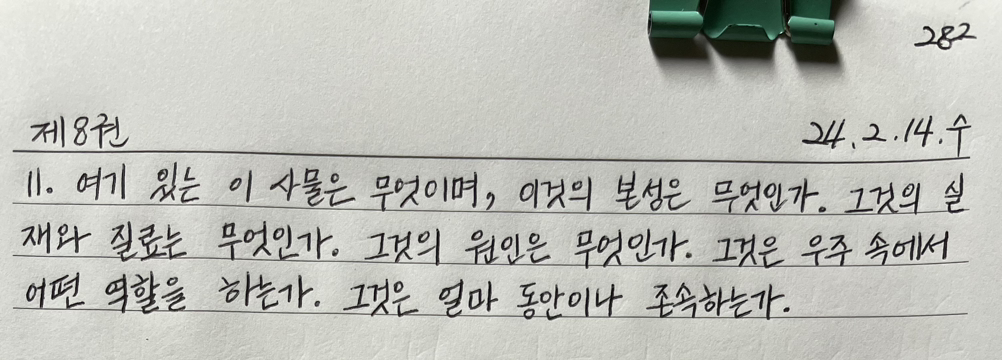 282
제8권 24.2.14.수
11. 여기 있는 이 사물은 무엇이며, 이것의 본성은 무엇인가. 그것의 실
재와 질료는 무엇인가. 그것의 원인은 무엇인가. 그것은 우주 속에서
어떤 역할을 하는가. 그것은 얼마 동안이나 존속하는가.